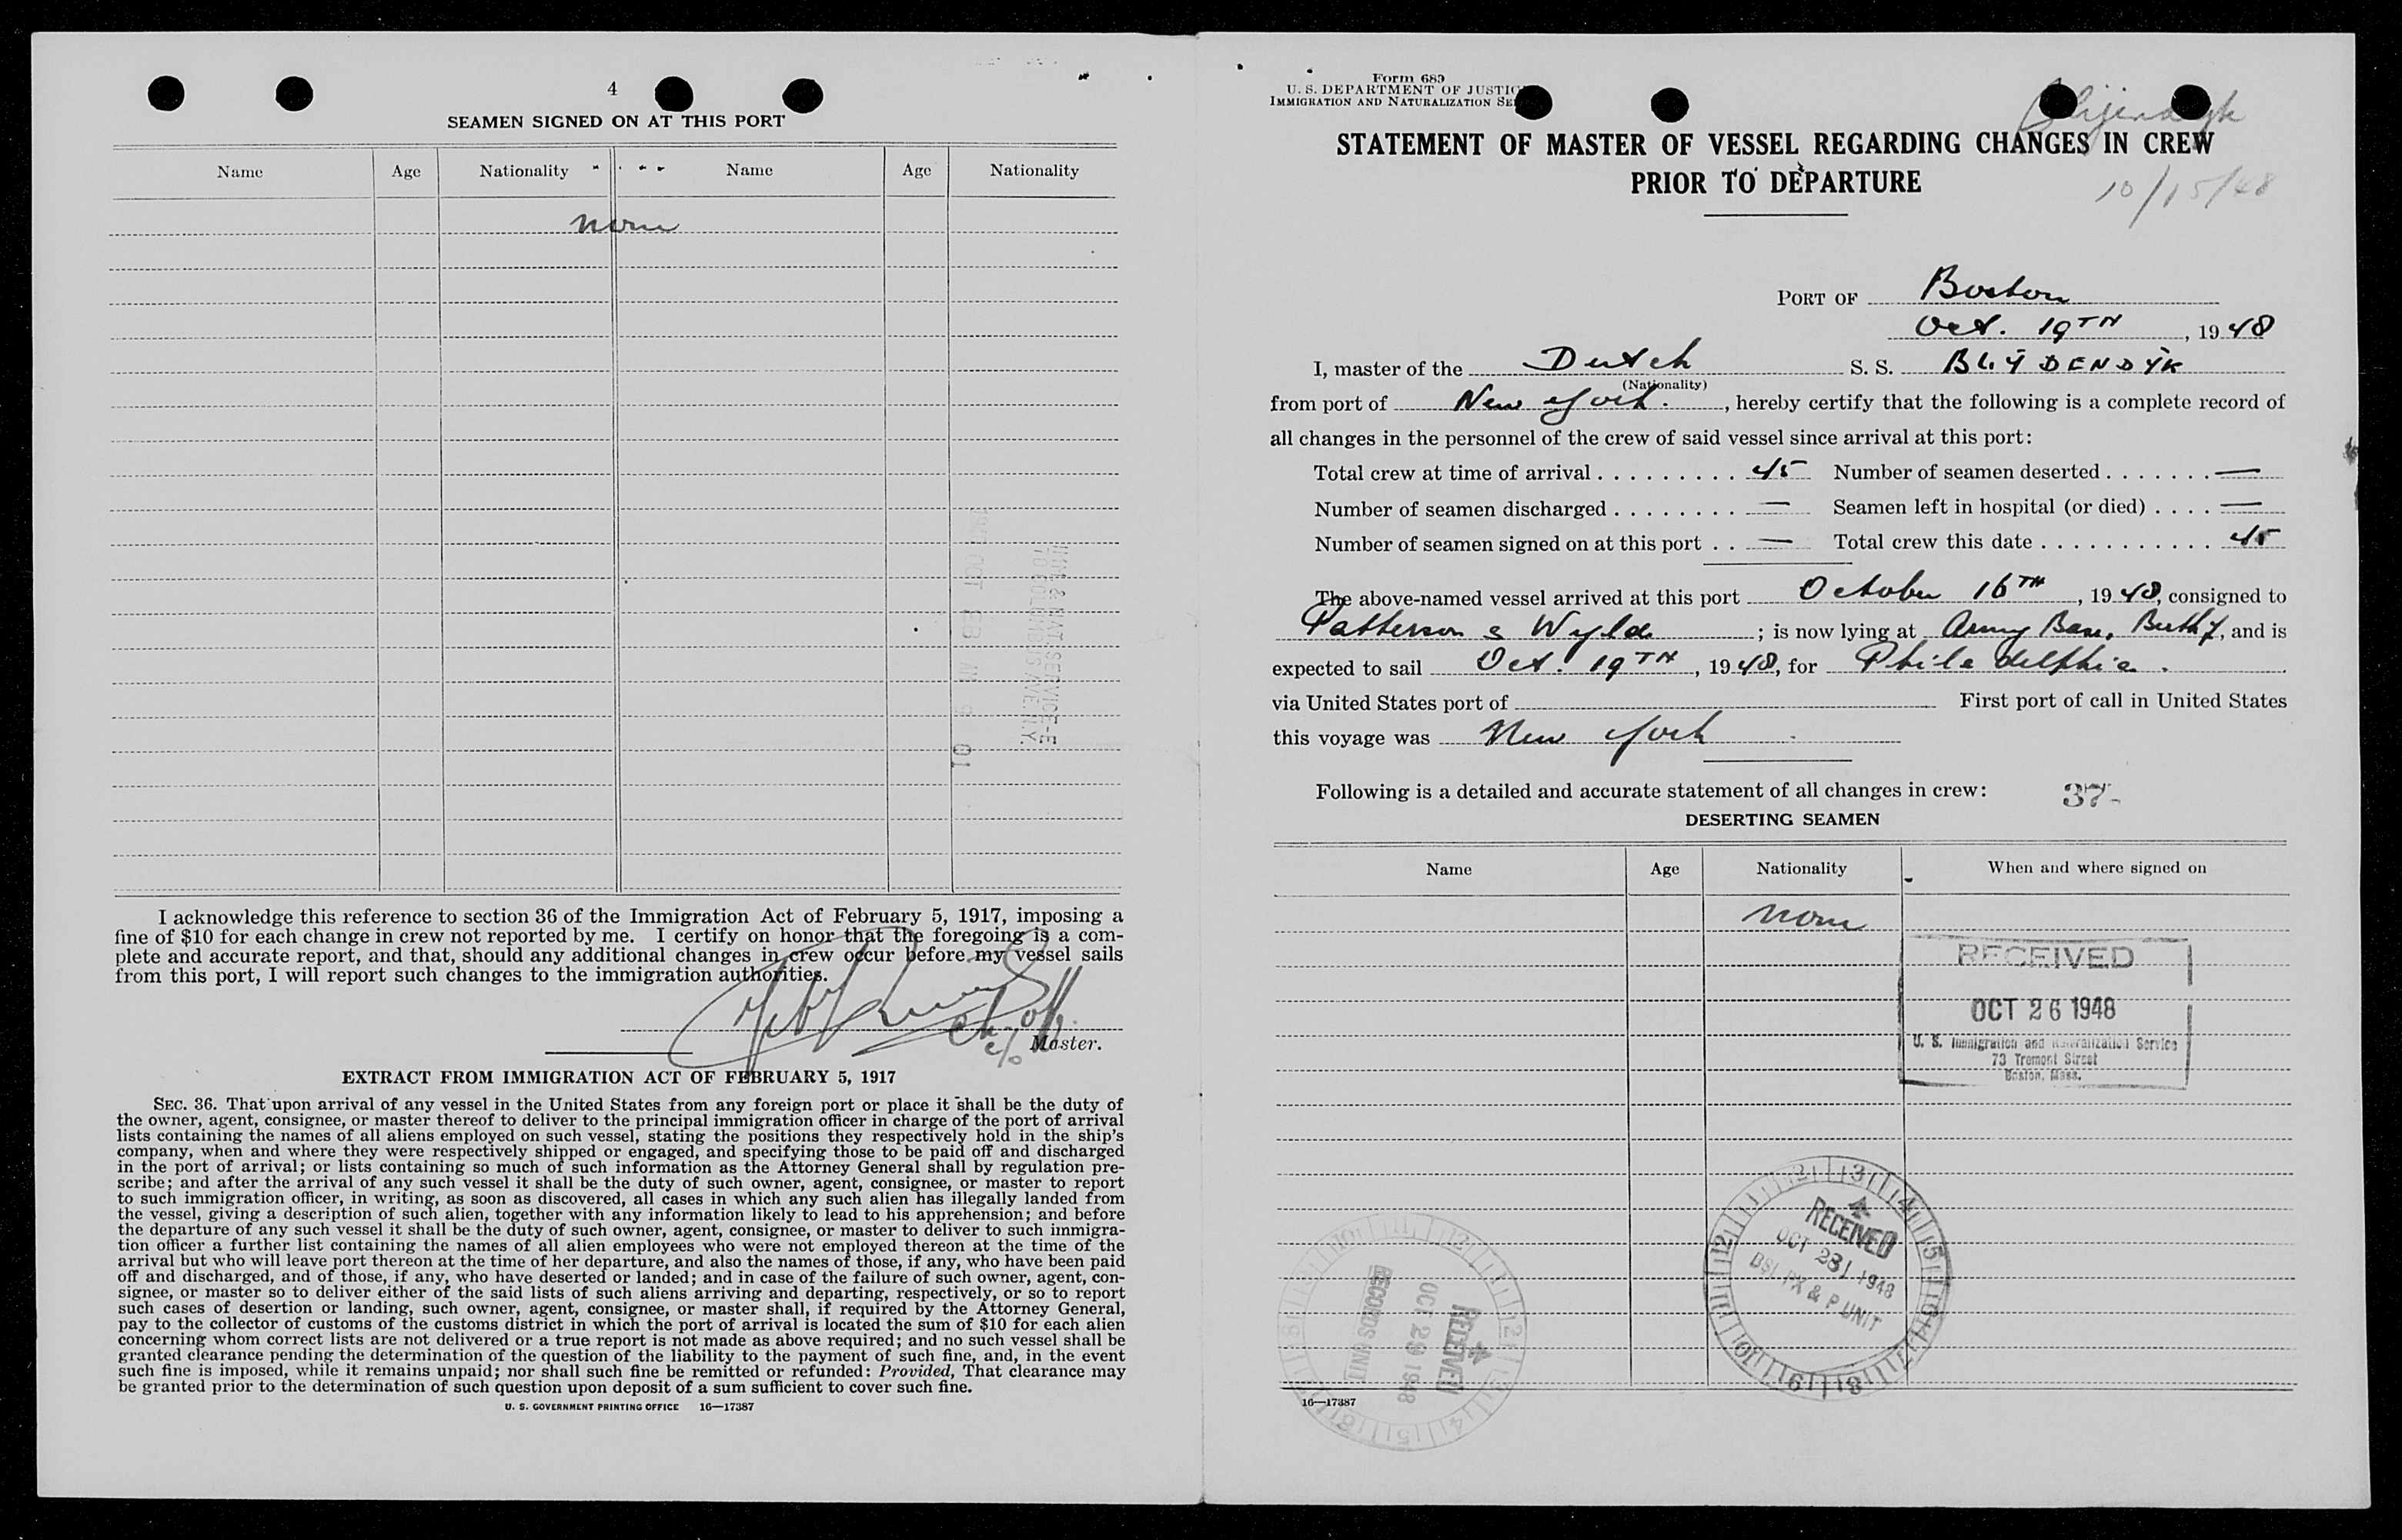 4
SEAMEN SIGNED ON AT THIS PORT
Name Age Nationality Name Age Nationality
None
I acknowledge this reference to section 36 of the Immigration Act of February 5, 1917, imposing a
fine of $10 for each change in crew not reported by me. I certify on honor that the foregoing is a com-
plete and accurate report, and that, should any additional changes in crew occur before my vessel sails
from this port, I will report such changes to the immigration authorities.
Ch. off.
c/o Master.
EXTRACT FROM IMMIGRATION ACT OF FEBRUARY 5, 1917
SEC. 36. That upon arrival of any vessel in the United States from any foreign port or place it shall be the duty of
the owner, agent, consignee, or master thereof to deliver to the principal immigration officer in charge of the port of arrival
lists containing the names of all aliens employed on such vessel, stating the positions they respectively hold in the ship's
company, when and where they were respectively shipped or engaged, and specifying those to be paid off and discharged
in the port of arrival; or lists containing so much of such information as the Attorney General shall by regulation pre-
scribe; and after the arrival of any such vessel it shall be the duty of such owner, agent, consignee, or master to report
to such immigration officer, in writing, as soon as discovered, all cases in which any such alien has illegally landed from
the vessel, giving a description of such alien, together with any information likely to lead to his apprehension; and before
the departure of any such vessel it shall be the duty of such owner, agent, consignee, or master to deliver to such immigra-
tion officer a further list containing the names of all alien employees who were not employed thereon at the time of the
arrival but who will leave port thereon at the time of her departure, and also the names of those, if any, who have been paid
off and discharged, and of those, if any, who have deserted or landed; and in case of the failure of such owner, agent, con-
signee, or master so to deliver either of the said lists of such aliens arriving and departing, respectively, or so to report
such cases of desertion or landing, such owner, agent, consignee, or master shall, if required by the Attorney General,
pay to the collector of customs of the customs district in which the port of arrival is located the sum of $10 for each alien
concerning whom correct lists are not delivered or a true report is not made as above required; and no such vessel shall be
granted clearance pending the determination of the question of the liability to the payment of such fine, and, in the event
such fine is imposed, while it remains unpaid; nor shall such fine be remitted or refunded: Provided, That clearance may
be granted prior to the determination of such question upon deposit of a sum sufficient to cover such fine.
U. S. GOVERNMENT PRINTING OFFICE 16—17387
Form 689
U. S. DEPARTMENT OF JUSTIC
IMMIGRATION AND NATURALIZATION SE
Blijendyk
STATEMENT OF MASTER OF VESSEL REGARDING CHANGES IN CREW
PRIOR TO DEPARTURE
10/15/48
PORT OF Boston
Oct. 19TH, 1948
I, master of the Dutch S. S. BLYDENDYK
(Nationality)
from port of New York., hereby certify that the following is a complete record of
all changes in the personnel of the crew of said vessel since arrival at this port:
Total crew at time of arrival . . . . . . . . . 45 Number of seamen deserted . . . . . . . —
Number of seamen discharged . . . . . . . . — Seamen left in hospital (or died) . . . . —
Number of seamen signed on at this port . . — Total crew this date . . . . . . . . . . . 45
The above-named vessel arrived at this port October 16TH, 1948, consigned to
Patterson & Wylde; is now lying at Army Base, Berth 7, and is
expected to sail Oct. 19TH, 1948, for Philadelphia.
via United States port of First port of call in United States
this voyage was New York
Following is a detailed and accurate statement of all changes in crew: 37-
DESERTING SEAMEN
Name Age Nationality When and where signed on
None
RECEIVED
OCT 26 1948
U. S. Immigration and Naturalization Service
73 Tremont Street
Boston, Mass.
RECEIVED
OCT 28 1948
BSI PX & P UNIT
RECEIVED
OCT 29 1948
RECORDS UNIT
16—17387